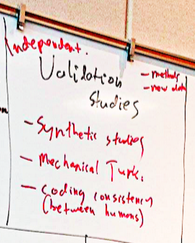 Independent.
Validation
Studies
- methods
- new data
- Synthetic studies
- Mechanical Turk.
- Coding consistency
(between humans)